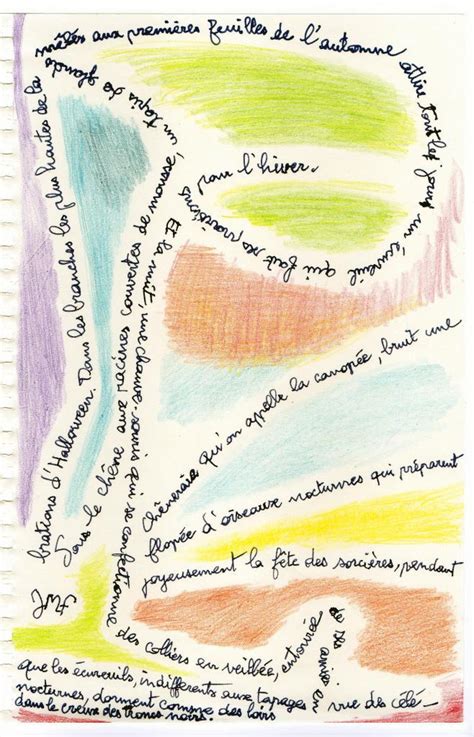 Sous le chêne aux racines couvertes de mousse, un tapis de glands
mêlés aux premières feuilles de l'automne attire tous les jours un écureuil qui fait ses provisions
pour l'hiver.
Et la nuit, une chauve-souris qui se confectionne
des colliers en veillée, entourée
de ses amies en
vue des célé-
brations d'Halloween. Dans les branches les plus hautes de la
Chêneraie qu'on appelle la canopée, bruit une
flopée d'oiseaux nocturnes qui préparent
joyeusement la fête des sorcières, pendant
que les écureuils, indifférents aux tapages
nocturnes, dorment comme des loirs
dans le creux des troncs noirs.